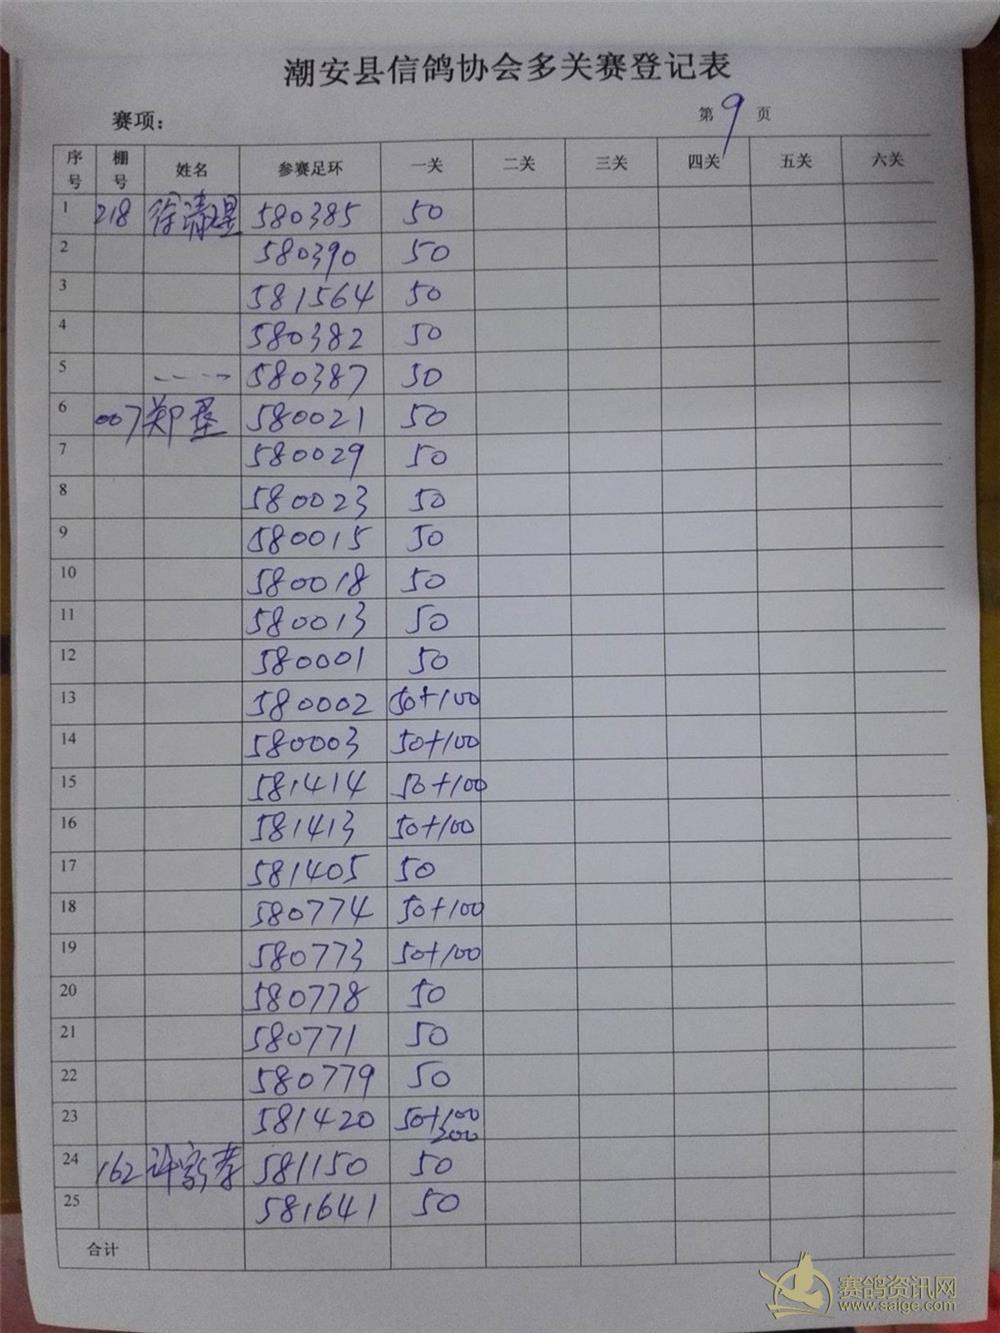 潮安县信鸽协会多关赛登记表
赛项： 第9页
序号 棚号 姓名 参赛足环 一关 二关 三关 四关 五关 六关
1 218 徐清 580385 50
2 580390 50
3 581564 50
4 580382 50
5 580387 50
6 007 郑 580021 50
7 580029 50
8 580023 50
9 580015 50
10 580018 50
11 580013 50
12 580001 50
13 580002 50+100
14 580003 50+100
15 581414 50+100
16 581413 50+100
17 581405 50
18 580774 50+100
19 580773 50+100
20 580778 50
21 580771 50
22 580779 50
23 581420 50+100 200
24 162 许 581150 50
25 581641 50
合计
赛鸽资讯网
www.saige.com